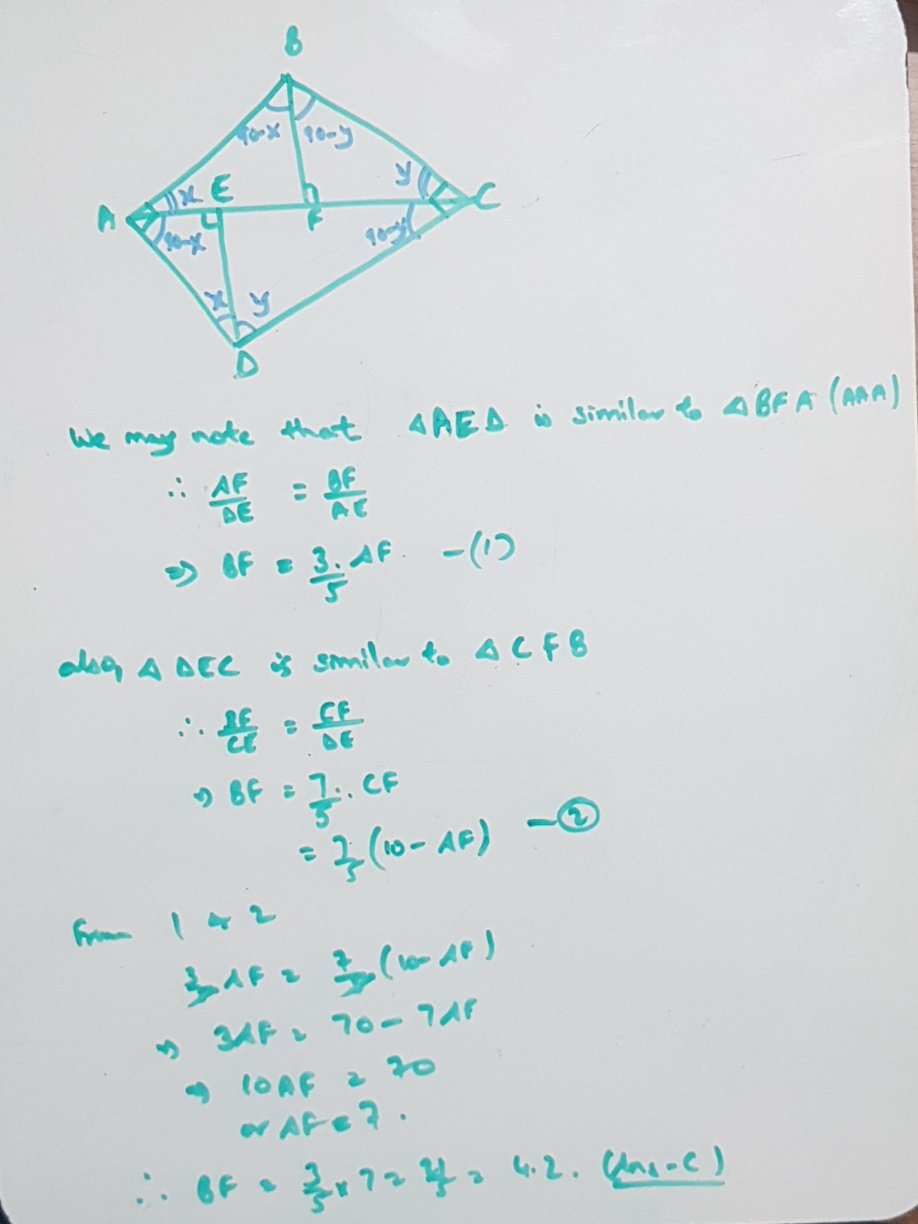 B
90-x 90-y
x E y
A F C
90-x 90-y
x y
D
We may note that △AED is similar to △BFA (AAA)
∴ AF/DE = BF/AE
⇒ BF = 3/5 . AF - (1)
also, △ DEC is similar to △ CFB
∴ BF/CE = CF/DE
⇒ BF = 7/5 . CF
= 7/5 (10 - AF) - ②
From 1 & 2
3/5 AF = 7/5 (10 - AF)
⇒ 3AF = 70 - 7AF
⇒ 10AF = 70
or AF = 7.
∴ BF = 3/5 x 7 = 21/5 = 4.2. (Ans - C)